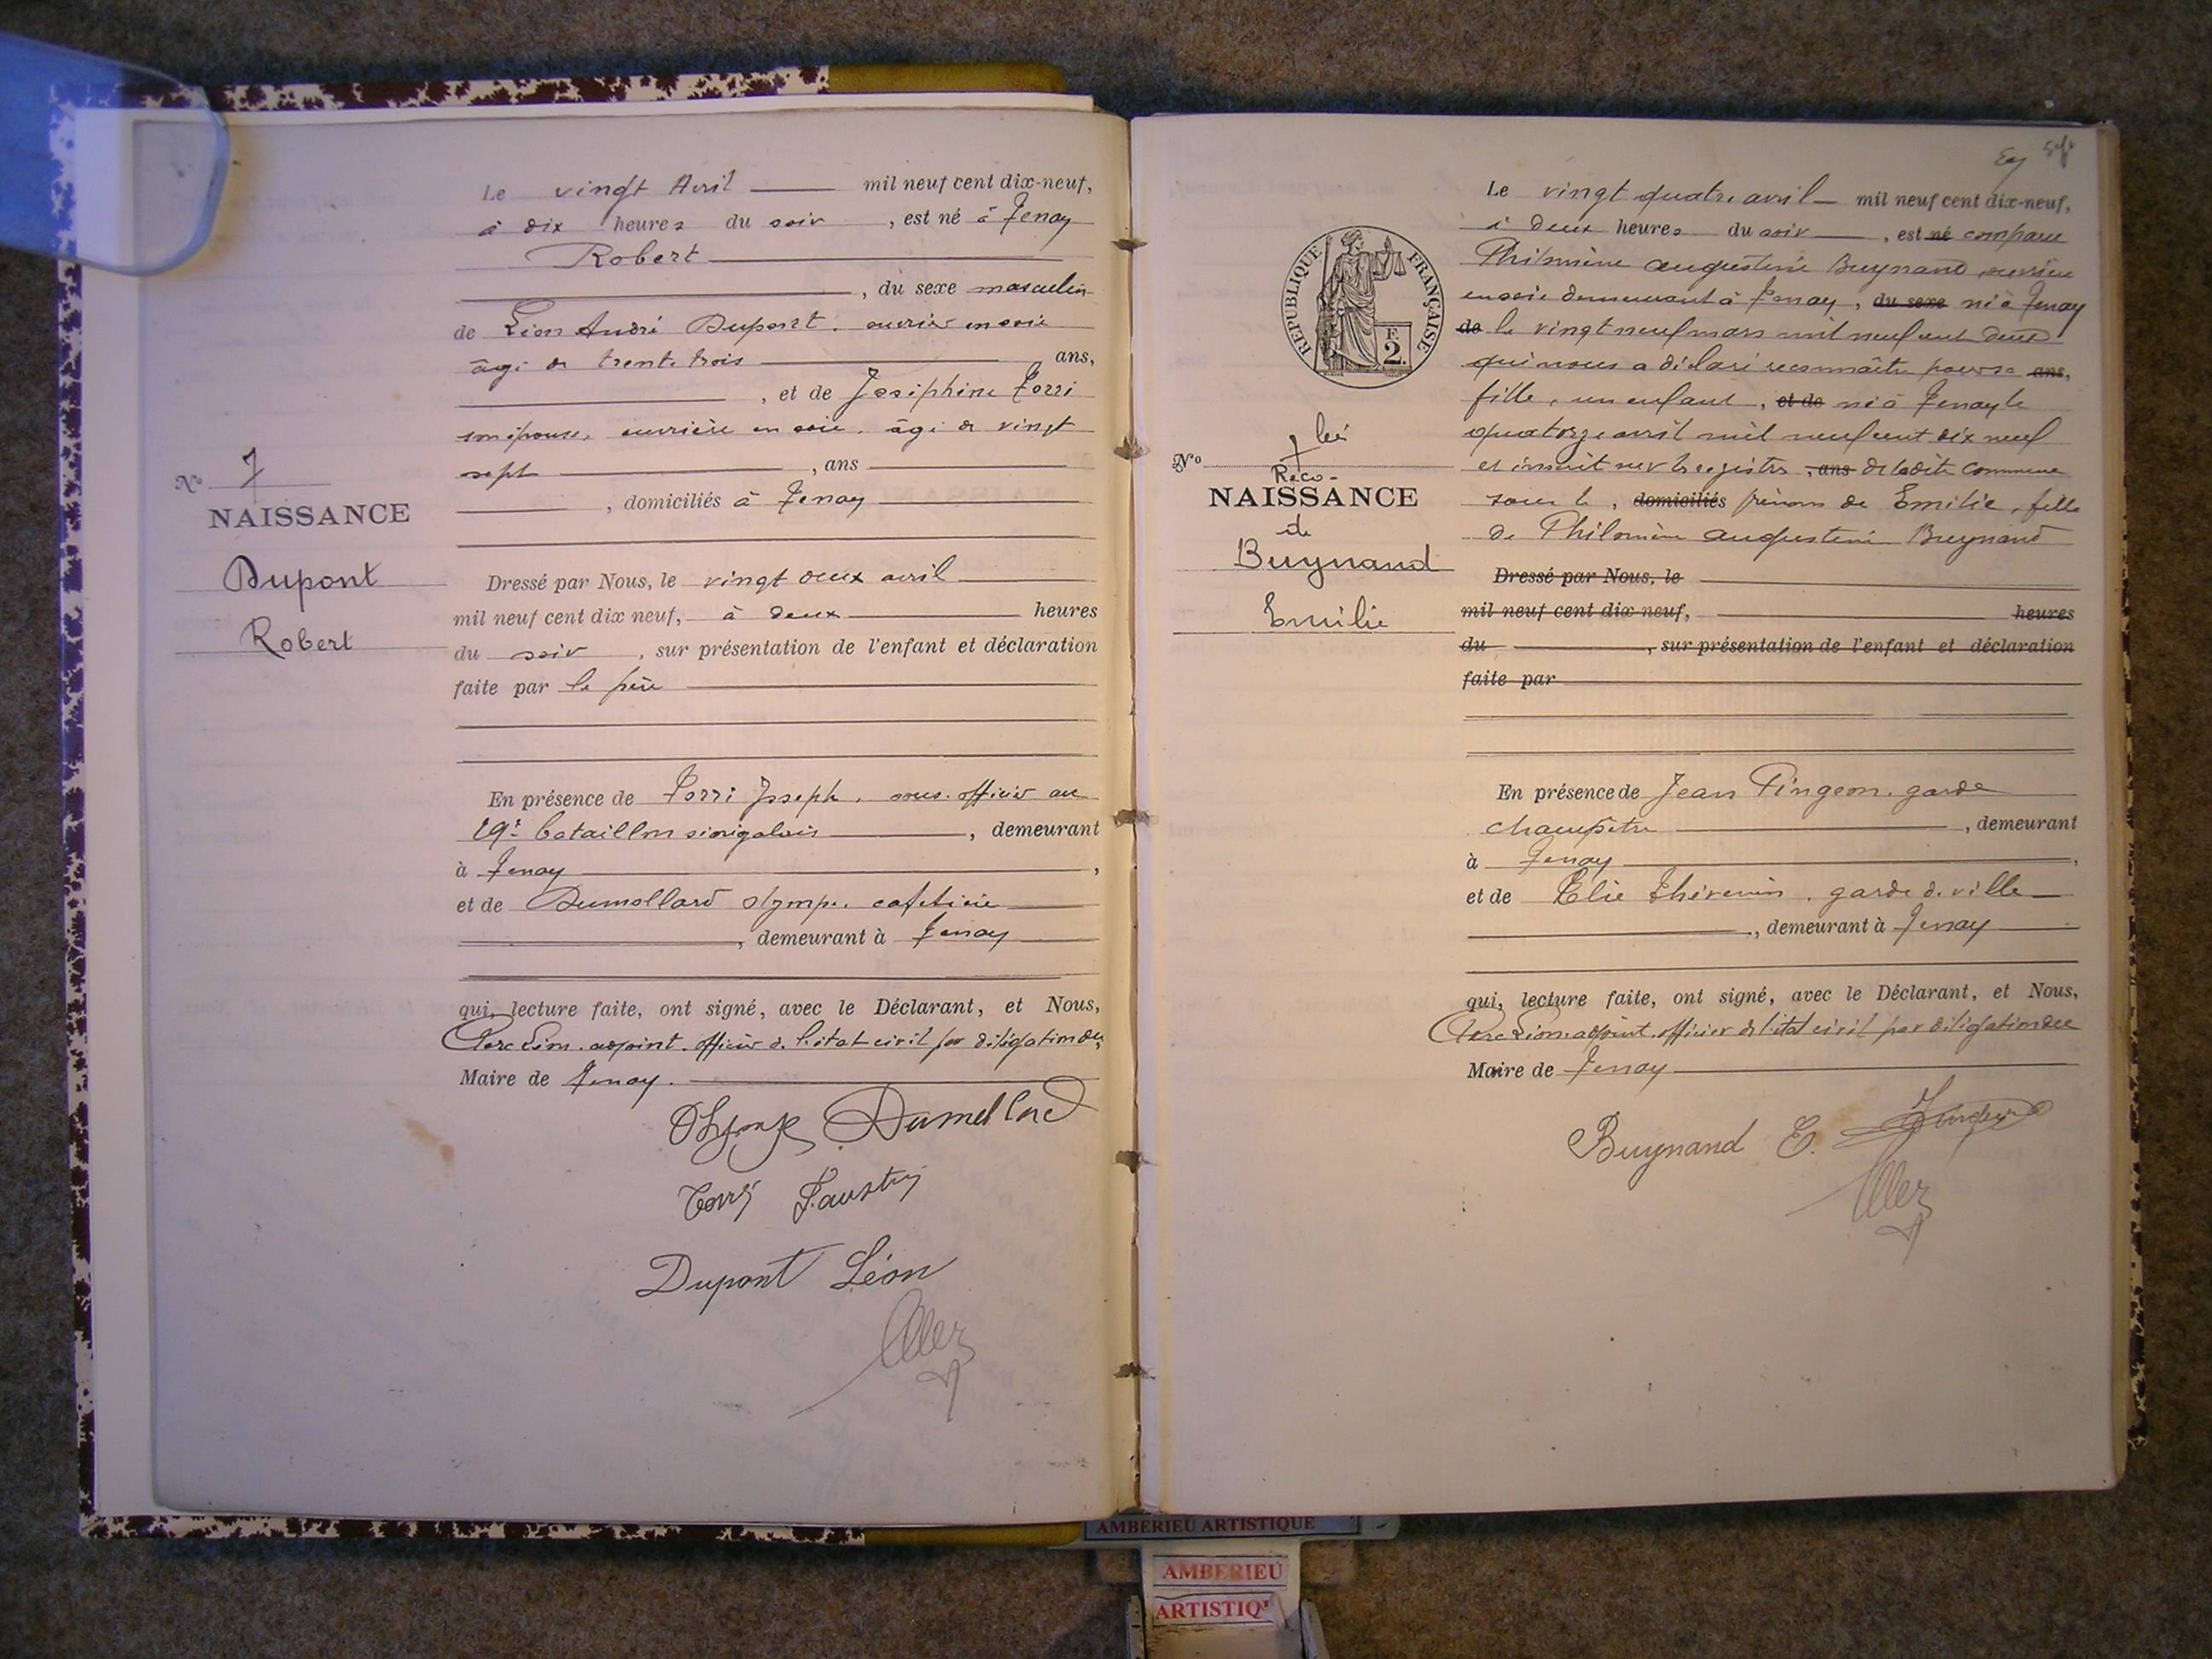 Le vingt Avril mil neuf cent dix-neuf,
à dix heures du soir, est né à Tenay
Robert
, du sexe masculin
de Léon André Dupont, ouvrier en soie
âgé de trente trois ans,
, et de Joséphine Torri
son épouse, ouvrière en soie, âgé de vingt
sept , ans
, domiciliés à Tenay
No 7
NAISSANCE
Dupont
Robert
Dressé par Nous, le vingt deux avril
mil neuf cent dix neuf, à deux heures
du soir, sur présentation de l'enfant et déclaration
faite par le père
En présence de Torri Joseph, sous-officier au
19e bataillon sénégalais, demeurant
à Tenay,
et de Dumollard Olympe, cafetière
, demeurant à Tenay
qui, lecture faite, ont signé, avec le Déclarant, et Nous,
Clerc Léon, adjoint, officier de l'état civil par délégation du
Maire de Tenay.
Olympe Dumollard
Torri Faustin
Dupont Léon
Le vingt quatre avril mil neuf cent dix-neuf,
à deux heures du soir, est né comparu
Philomène Augustine Buynand, ouvrière
en soie demeurant à Tenay, du sexe né à Tenay
de le vingt neuf mars mil neuf cent deux
qui nous a déclaré reconnaître pour sa ans,
fille, un enfant, et de né à Tenay le
quatorze avril mil neuf cent dix neuf
et inscrit sur le registre, ans de ladite commune
sous le, domiciliés prénom de Emilie, fille
de Philomène Augustine Buynand
RÉPUBLIQUE FRANÇAISE
F.
2.
No
Reco-
NAISSANCE
de
Buynand
Emilie
Dressé par Nous, le
mil neuf cent dix-neuf, heures
du , sur présentation de l'enfant et déclaration
faite par
En présence de Jean Pingeon, garde
champêtre, demeurant
à Tenay,
et de Elie Thévenin, garde de ville
, demeurant à Tenay
qui, lecture faite, ont signé, avec le Déclarant, et Nous,
Clerc Léon adjoint, officier de l'état civil par délégation du
Maire de Tenay
Buynand E.
AMBERIEU ARTISTIQUE
AMBERIEU
ARTISTIQ